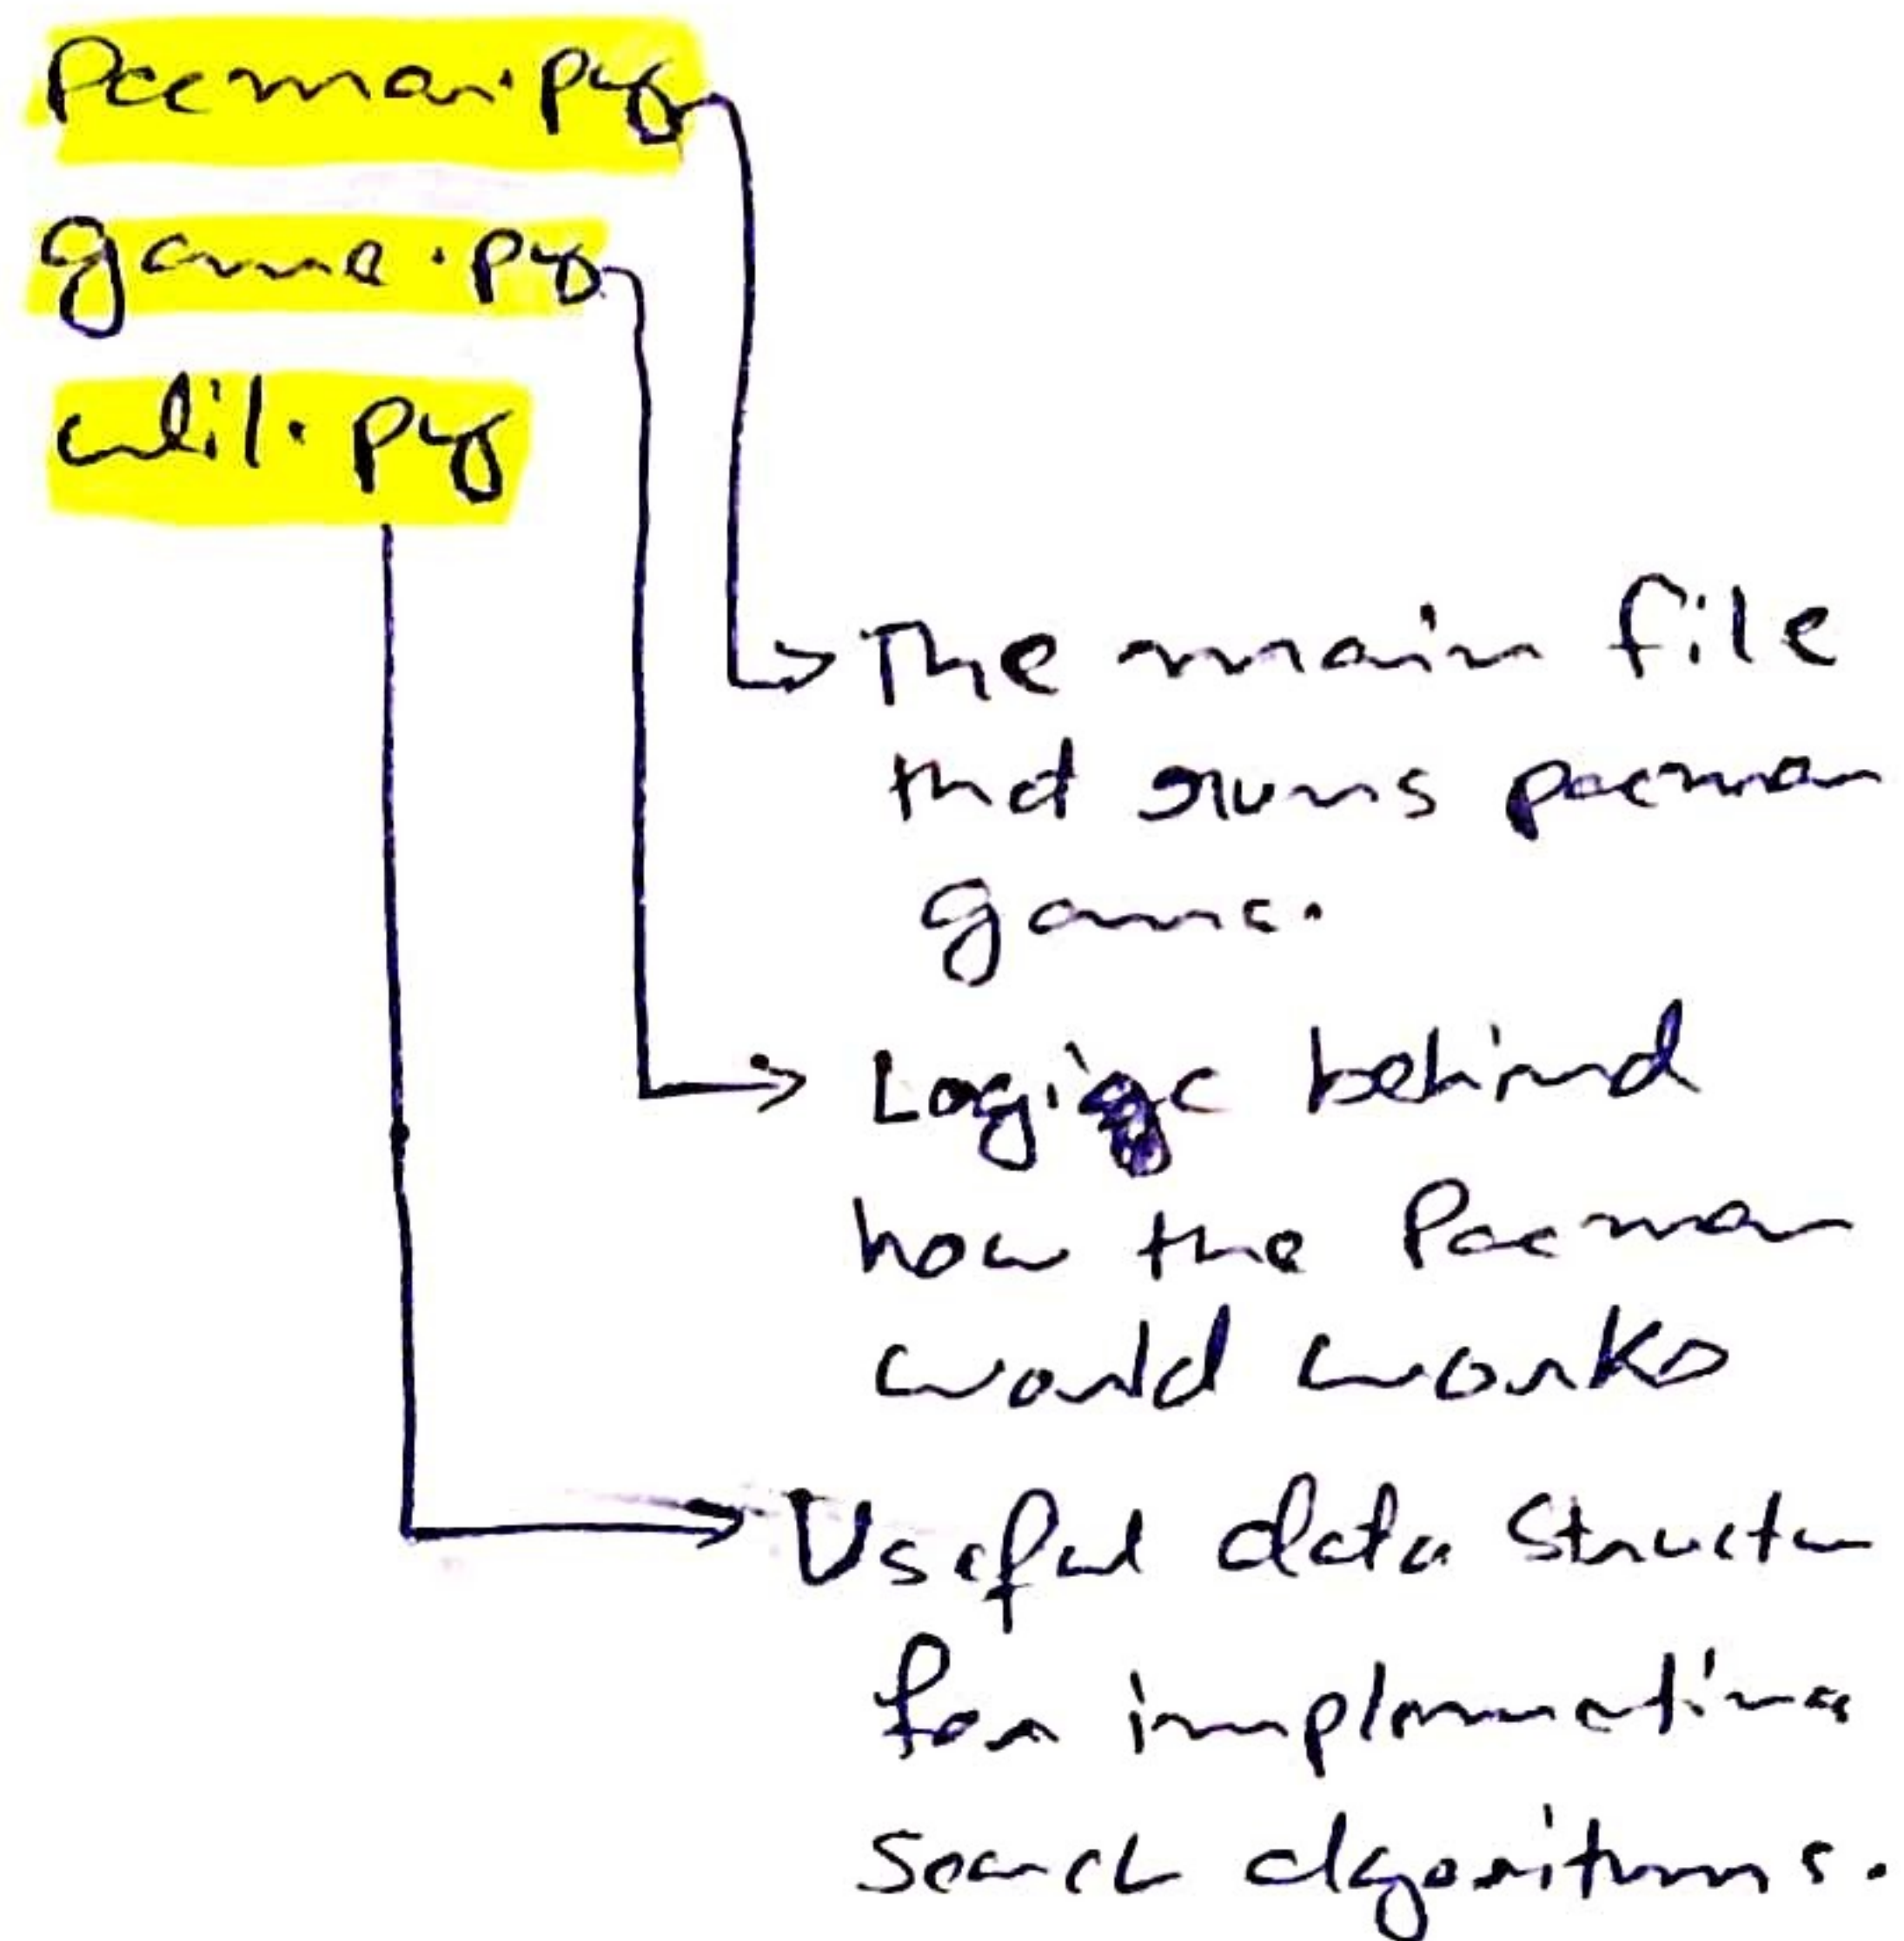 Pacman.py
game.py
util.py
The main file
that runs pacman
game.
Logic behind
how the Pacman
world works
Useful data Structu
for implementing
Search algorithms.